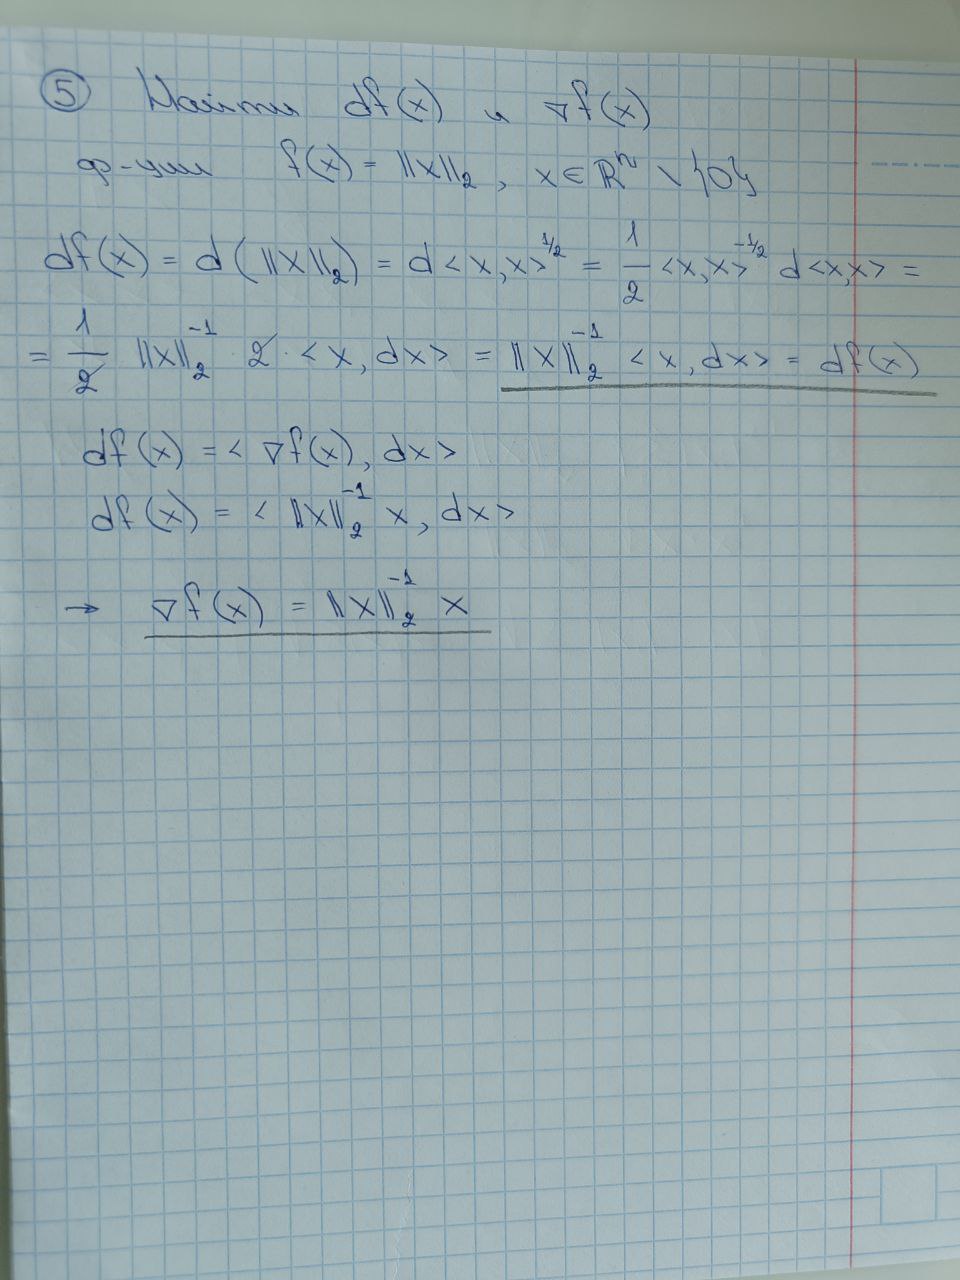 ⑤ Найти df(x) и ∇f(x)
ф-ции f(x) = ||x||₂, x ∈ ℝⁿ \ {0}
df(x) = d(||x||₂) = d<x,x>^{1/2} = 1/2 <x,x>^{-1/2} d<x,x> =
= 1/2 ||x||₂⁻¹ 2·<x, dx> = ||x||₂⁻¹ <x, dx> = df(x)
df(x) = < ∇f(x), dx>
df(x) = < ||x||₂⁻¹ x, dx>
→ ∇f(x) = ||x||₂⁻¹ x